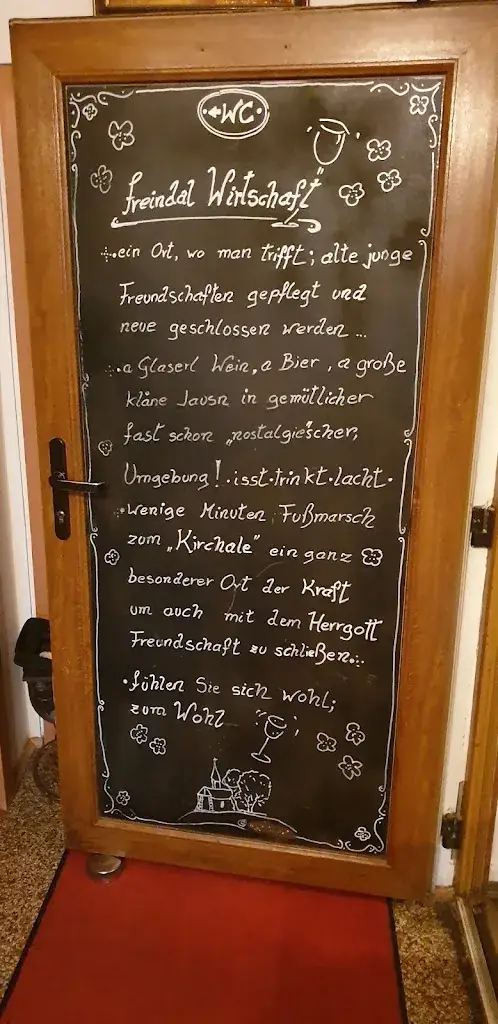 ←WC
freindal Wirtschaft"
...ein Ort, wo man trifft; alte junge
Freundschaften gepflegt und
neue geschlossen werden ...
..a Glaserl Wein, a Bier, a große
kläne Jausn in gemütlicher
fast schon „nostalgie"scher,
Umgebung! ·isst·trinkt·lacht·
·wenige Minuten Fußmarsch
zum „Kirchale" ein ganz
besonderer Ort der Kraft
um auch mit dem Herrgott
Freundschaft zu schließen...
·fühlen Sie sich wohl;
zum Wohl